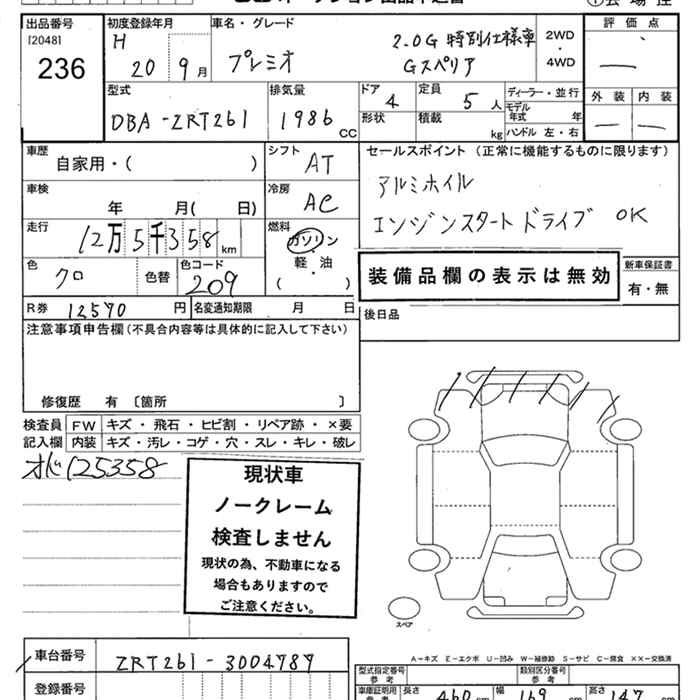 出品番号 [20481] 236
初度登録年月 H 20 9月
車名・グレード プレミオ 2.0G 特別仕様車 Gスペリア
2WD・4WD
評価点 —
型式 DBA-ZRT261
排気量 1986 CC
ドア 4
定員 5人
形状
積載 kg
ディーラー・並行
モデル年式 年
ハンドル 左・右
外装 内装
— —
車歴 自家用・( )
シフト AT
セールスポイント (正常に機能するものに限ります)
アルミホイル
エンジンスタート ドライブ OK
車検 年 月( 日)
冷房 AC
走行 12万5千358km
燃料 ガソリン・軽油・( )
色 クロ 色替 色コード 209
装備品欄の表示は無効
新車保証書 有・無
R券 12570円 名変通知期限 月 日
後日品
注意事項申告欄(不具合内容等は具体的に記入して下さい)
修復歴 有 〔箇所 〕
検査員記入欄 FW キズ・飛石・ヒビ割・リペア跡・×要
内装 キズ・汚レ・コゲ・穴・スレ・キレ・破レ
オド125358
現状車
ノークレーム
検査しません
現状の為、不動車になる
場合もありますので
ご注意ください。
スペア
A−キズ E−エクボ U−凹み W−補修跡 S−サビ C−腐食 XX−交換済
車台番号 ZRT261-3004787
登録番号
型式指定番号 参考
類別区分番号 参考
車庫証明用 長さ 460cm 幅 169cm 高さ 147cm